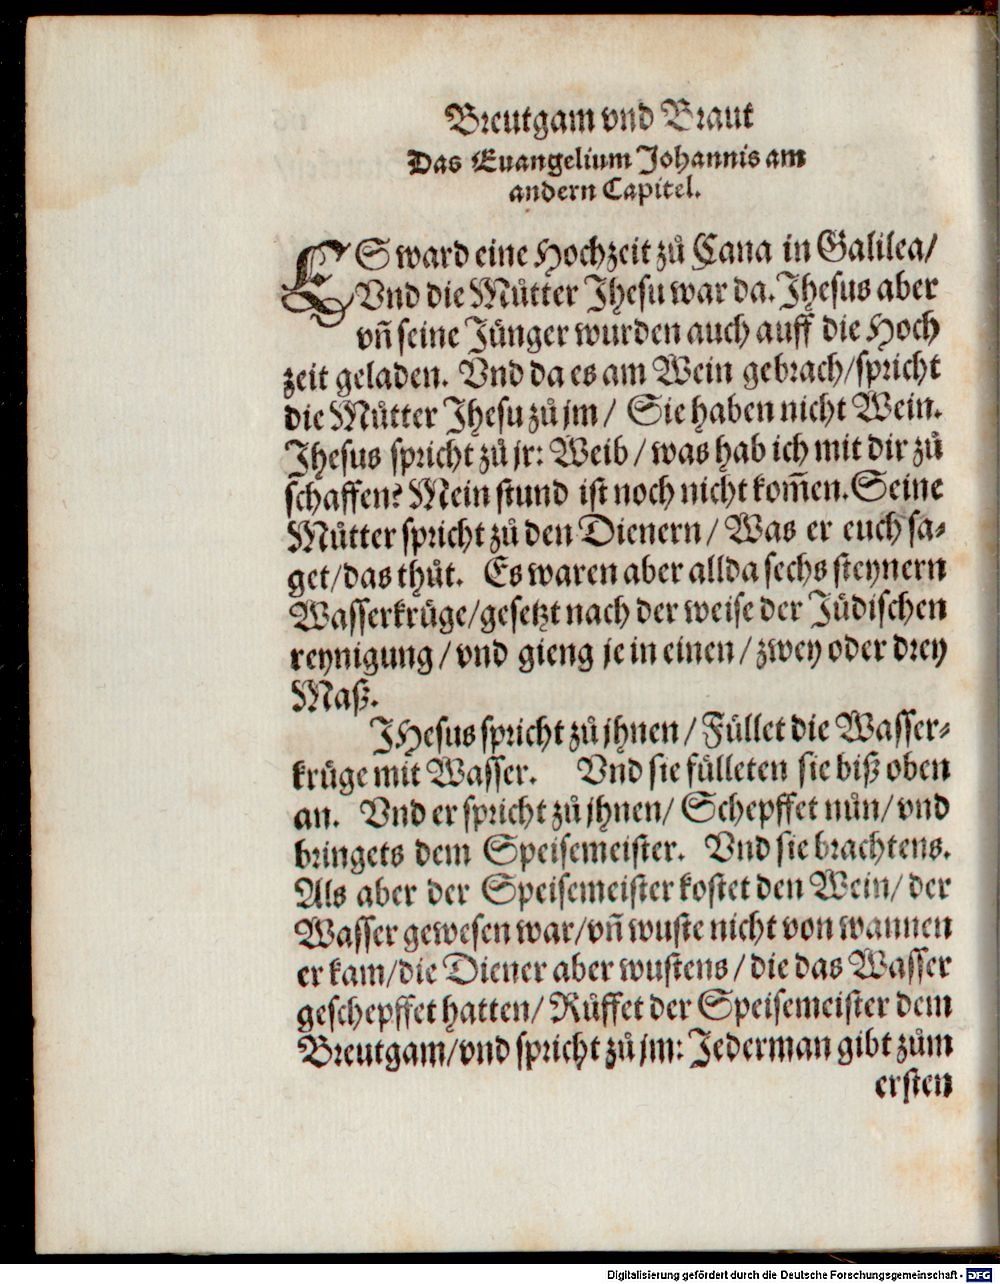 Breutgam vnd Braut
Das Euangelium Johannis am
andern Capitel.
ES ward eine Hochzeit zů Cana in Galilea/
Vnd die Můtter Jhesu war da. Jhesus aber
vñ seine Jünger wurden auch auff die Hoch
zeit geladen. Vnd da es am Wein gebrach/spricht
die Můtter Jhesu zů jm / Sie haben nicht Wein.
Jhesus spricht zů jr: Weib / was hab ich mit dir zů
schaffen? Mein stund ist noch nicht kom̄en. Seine
Můtter spricht zů den Dienern / Was er euch sa⸗
get/das thůt. Es waren aber allda sechs steynern
Wasserkrüge/gesetzt nach der weise der Jüdischen
reynigung / vnd gieng je in einen / zwey oder drey
Maß.
JHesus spricht zů jhnen / Füllet die Wasser⸗
krüge mit Wasser. Vnd sie fülleten sie biß oben
an. Vnd er spricht zů jhnen/ Schepffet nůn/ vnd
bringets dem Speisemeister. Vnd sie brachtens.
Als aber der Speisemeister kostet den Wein/ der
Wasser gewesen war/vñ wuste nicht von wannen
er kam/die Diener aber wustens / die das Wasser
geschepffet hatten/ Růffet der Speisemeister dem
Breutgam/vnd spricht zů jm: Jederman gibt zům
ersten
Digitalisierung gefördert durch die Deutsche Forschungsgemeinschaft - DFG